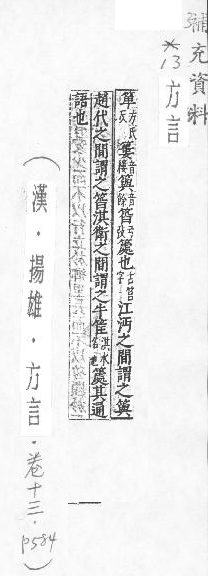 補充資料
*13 方言
箄方氏反簍音縷籅音餘筥弓弢𥳓也古筥字江沔之間謂之籅
趙代之間謂之筥淇衛之間謂之牛筐淇水名也𥳓其通
語也
(漢．揚雄．方言．卷十三．p584)